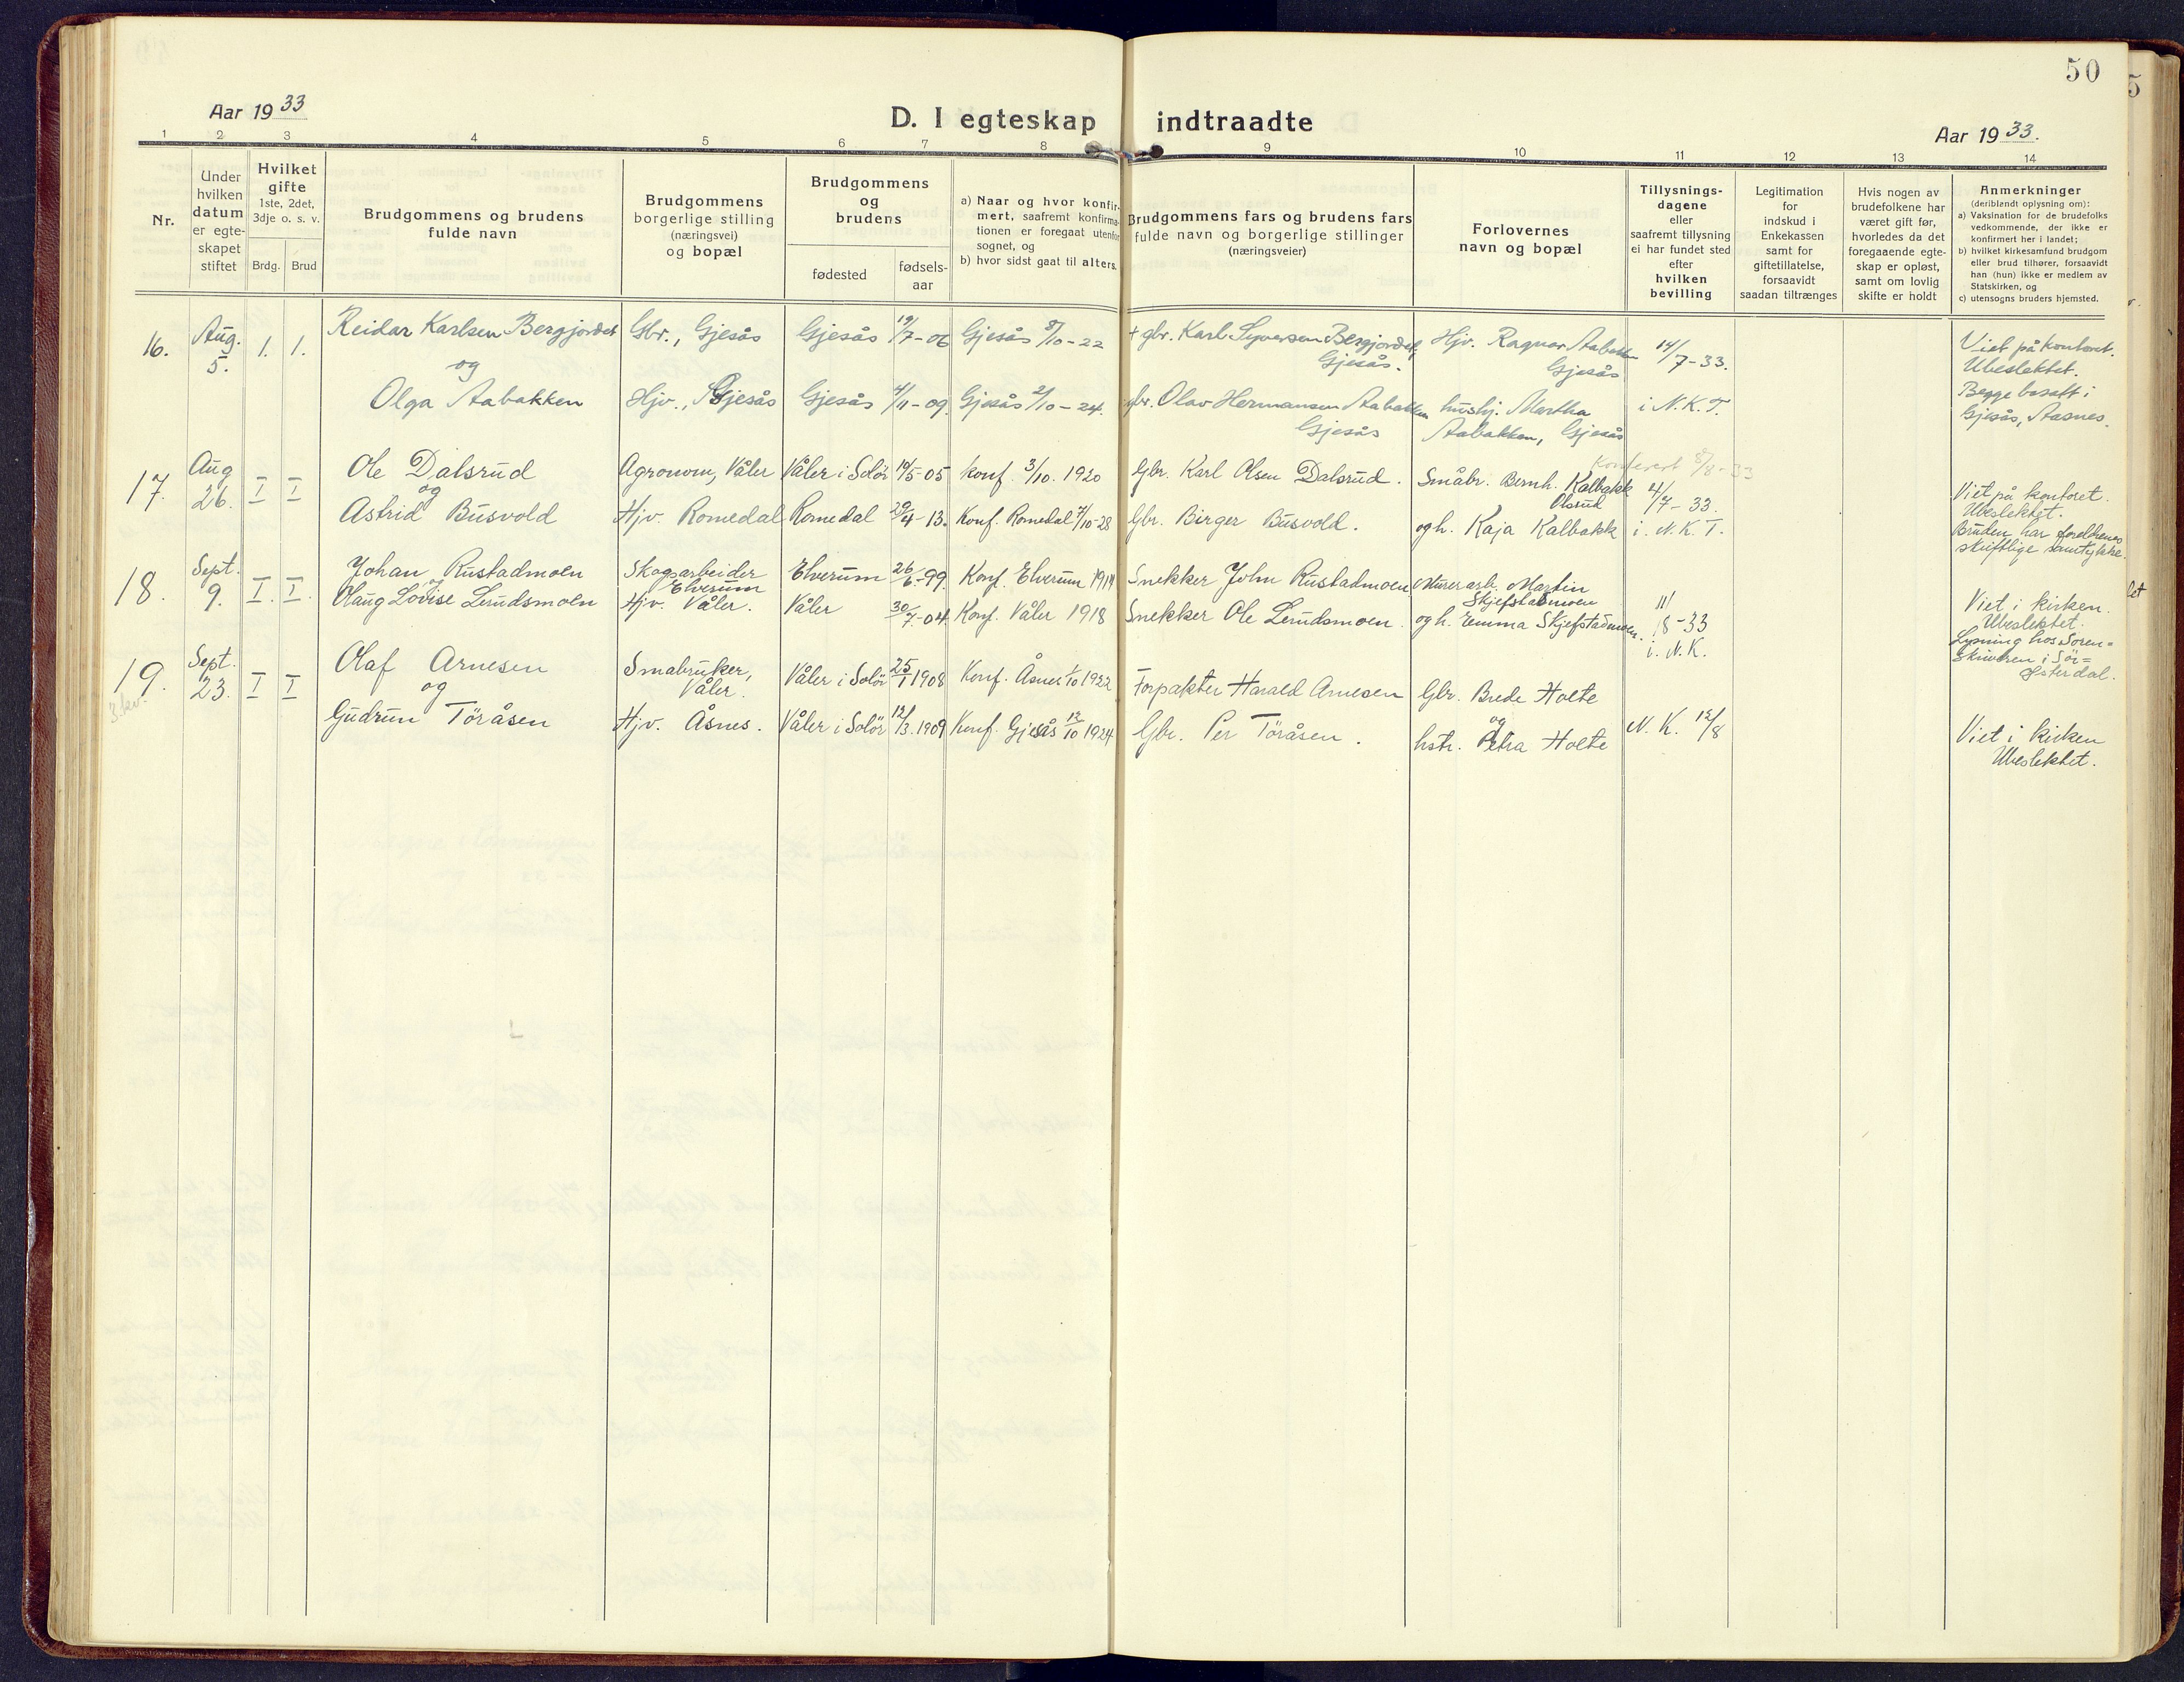 50
Aar 1933
D. I egteskap indtraadte
Aar 1933.
1 2 3 4 5 6 7 8 9 10 11 12 13 14
Nr.
Under hvilken datum er egte-skapet stiftet
Hvilket gifte 1ste, 2det, 3dje o. s. v.
Brdg. Brud
Brudgommens og brudens fulde navn
Brudgommens borgerlige stilling (næringsvei) og bopæl
Brudgommens og brudens
fødested
fødsels-aar
a) Naar og hvor konfir-mert, saafremt konfirma-tionen er foregaat utenfor sognet, og
b) hvor sidst gaat til alters.
Brudgommens fars og brudens fars fulde navn og borgerlige stillinger (næringsveier)
Forlovernes navn og bopæl
Tillysnings-dagene eller saafremt tillysning ei har fundet sted efter hvilken bevilling
Legitimation for indskud i Enkekassen samt for giftetillatelse, forsaavidt saadan tiltrænges
Hvis nogen av brudefolkene har været gift før, hvorledes da det foregaaende egte-skap er opløst, samt om lovlig skifte er holdt
Anmerkninger (deriblandt oplysning om):
a) Vaksination for de brudefolks vedkommende, der ikke er konfirmert her i landet;
b) hvilket kirkesamfund brudgom eller brud tilhører, forsaavidt han (hun) ikke er medlem av Statskirken, og
c) utensogns bruders hjemsted.
16. Aug. 5. 1. 1. Reidar Karlsen Bergjordet Gbr., Gjesås Gjesås 19/7-06 Gjesås 8/10-22 + gbr. Karl Syversen Bergjordet, Gjesås. Hjv. Ragnar Aabakken Gjesås 14/7-33. Viet på kontoret. Ubeslektet.
og
Olga Aabakken Hjv., Gjesås Gjesås 4/11-09 Gjesås 2/10-24. gbr. Olav Hermansen Aabakken Gjesås hushj. Martha Aabakken, Gjesås i N.K.T. Begge bosatt i Gjesås, Aasnes.
17. Aug 26. I I Ole Dalsrud Agronom, Våler Våler i Solör 19/5-05 konf. 3/10. 1920 Gbr. Karl Olsen Dalsrud. Småbr. Bernh. Kalbakk Olsrud 4/7-33. Viet på kontoret. Ubeslektet.
Konferert 8/8-33
og
Astrid Busvold Hjv. Romedal Romedal 29/4-13. Konf. Romedal 7/10-28 Gbr. Birger Busvold. og h. Kaja Kalbakk i. N.K.T. Bruden har foreldrenes skriftlige samtykke.
18. Sept. 9. I. I. Johan Rustadmoen Skogsarbeider Elverum Elverum 26/6-99 Konf. Elverum 1914 Snekker John Rustadmoen Murerarb. Martin Skjefstadmoen 11/8-33 Viet i kirken. Ubeslektet.
og
Olaug Lovise Lerudsmoen Hjv. Våler. Våler 30/7-04 Konf. Våler 1918 Snekker Ole Lerudsmoen. og h. Emma Skjefstadmoen. i. N.K. Lysning hos Soren=skriveren i Sör=Österdal.
19. Sept. 23. I I Olaf Arnesen Småbruker, Våler. Våler i Solör 25/1 1908 Konf. Åsnes 1/10 1922 Forpakter Harald Arnesen Gbr. Brede Holte
3. kv.
og
Gudrun Töråsen Hjv. Åsnes. Våler i Solör 12/3. 1909 Konf. Gjesås 12/10 1924 Gbr. Per Töråsen. og hstr. Petra Holte N.K. 12/8 Viet i kirken Ubeslektet.